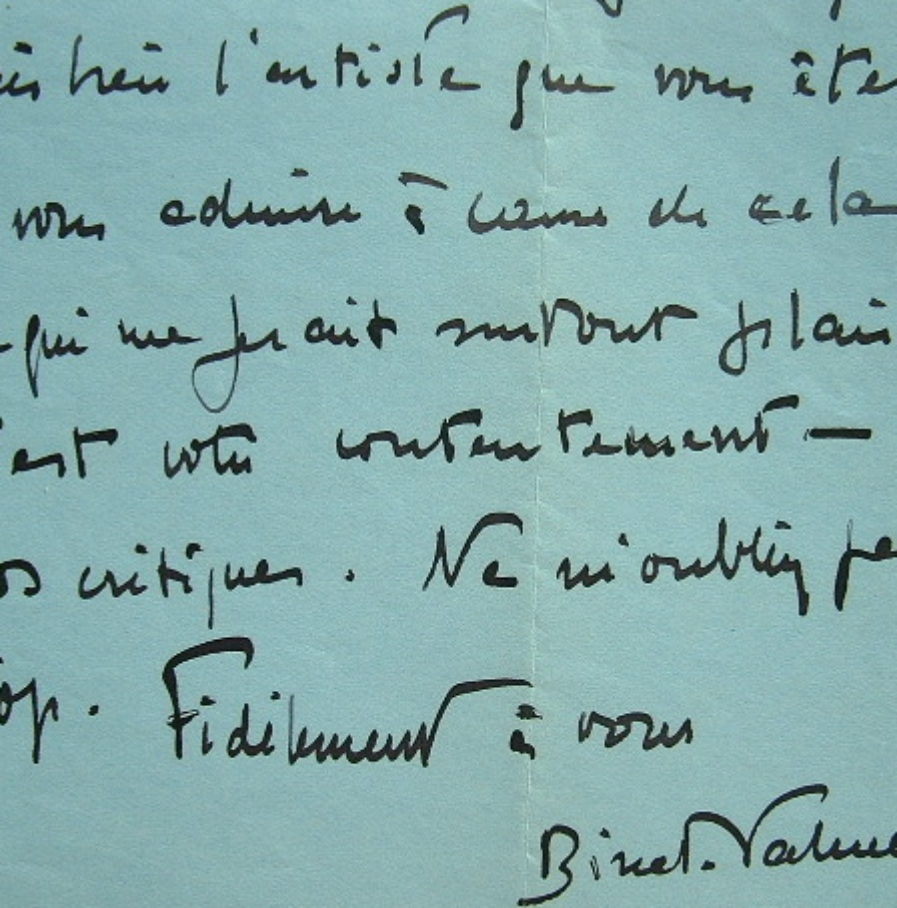 bien l'artiste que vous êtes
vous admire à cause de cela
qui me ferait surtout plai
est votre contentement —
os critiques. Ne m'oubliez pa
op. Fidèlement à vous
Binet-Valme